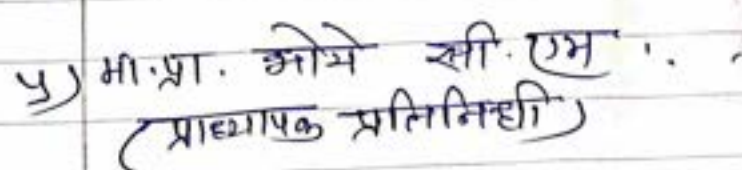 ५) मा.प्रा. भोये सी. एम.
(प्राध्यापक प्रतिनिधी)